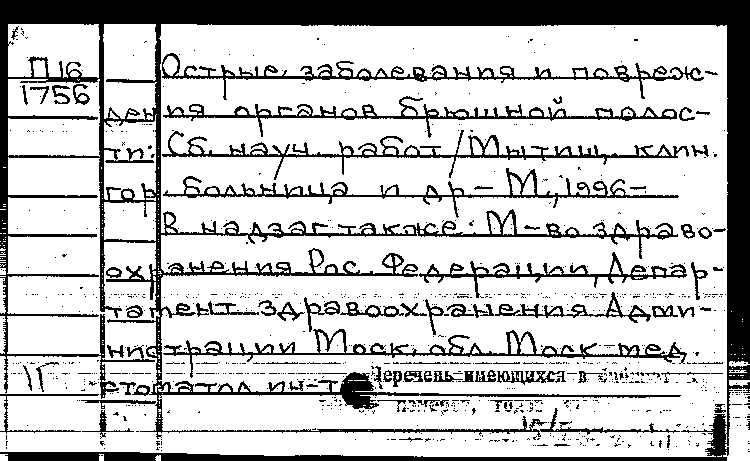 П 16
1756
Острые заболевания и повреж-
дения органов брюшной полос-
ти: Сб. науч. работ / Мытищ. клин.
гор. больница и др. – М., 1996–
В надзаг. также: М-во здраво-
охранения Рос. Федерации, Депар-
тамент здравоохранения Адми-
нистрации Моск. обл. Моск. мед.
стоматол. ин-т
Перечень имеющихся в
номеров, годов